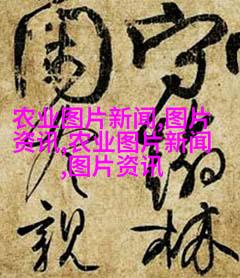 农业图片新闻,图片
资讯,农业图片新闻
,图片资讯
守林
親